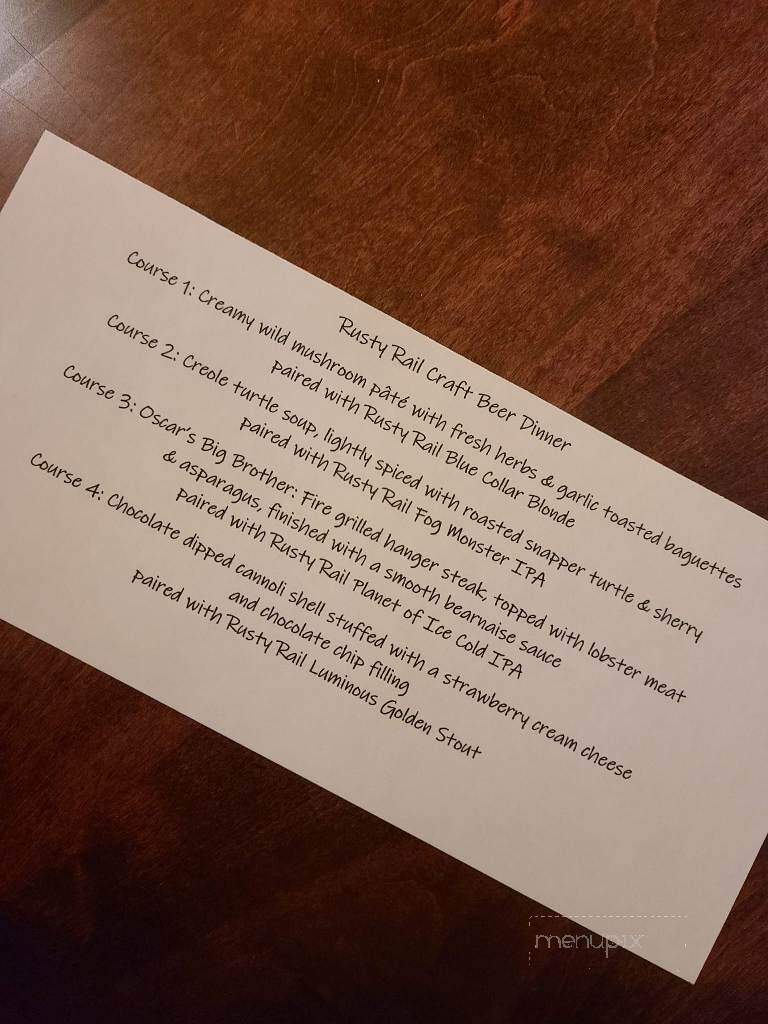 Rusty Rail Craft Beer Dinner
Course 1: Creamy wild mushroom pâté with fresh herbs & garlic toasted baguettes
paired with Rusty Rail Blue Collar Blonde
Course 2: Creole turtle soup, lightly spiced with roasted snapper turtle & sherry
paired with Rusty Rail Fog Monster IPA
Course 3: Oscar's Big Brother: Fire grilled hanger steak, topped with lobster meat
& asparagus, finished with a smooth bearnaise sauce
paired with Rusty Rail Planet of Ice Cold IPA
Course 4: Chocolate dipped cannoli shell stuffed with a strawberry cream cheese
and chocolate chip filling
paired with Rusty Rail Luminous Golden Stout
menupix